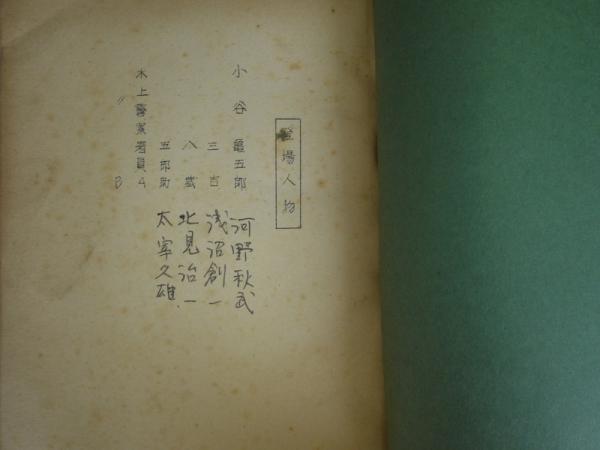 登場人物
小谷亀五郎 河野秋武
三吉 浅沼創一
八蔵 北見治一
五郎助 太宰久雄
水上警察署員A
〃 B